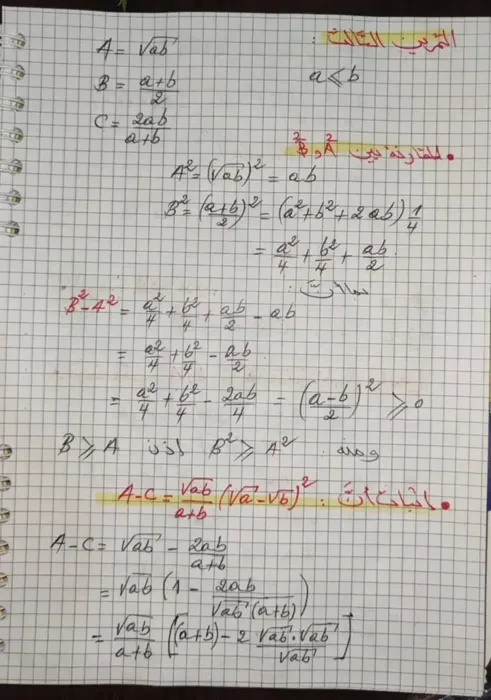 التمرين الثالث :
A = √ab
a ≤ b
B = (a+b)/2
C = 2ab/(a+b)
• المقارنة بين A² و B²
A² = (√ab)² = ab
B² = ((a+b)/2)² = (a² + b² + 2ab) 1/4
= a²/4 + b²/4 + ab/2
B² - A² = a²/4 + b²/4 + ab/2 - ab
= a²/4 + b²/4 - ab/2
= a²/4 + b²/4 - 2ab/4 = ((a-b)/2)² ≥ 0
ومنه : B² ≥ A² اذن B ≥ A
• اثبات ان : A-C = √ab/(a+b) (√a - √b)²
A-C = √ab - 2ab/(a+b)
= √ab (1 - 2ab/(√ab (a+b)))
= √ab/(a+b) [(a+b) - 2 √ab·√ab/√ab]